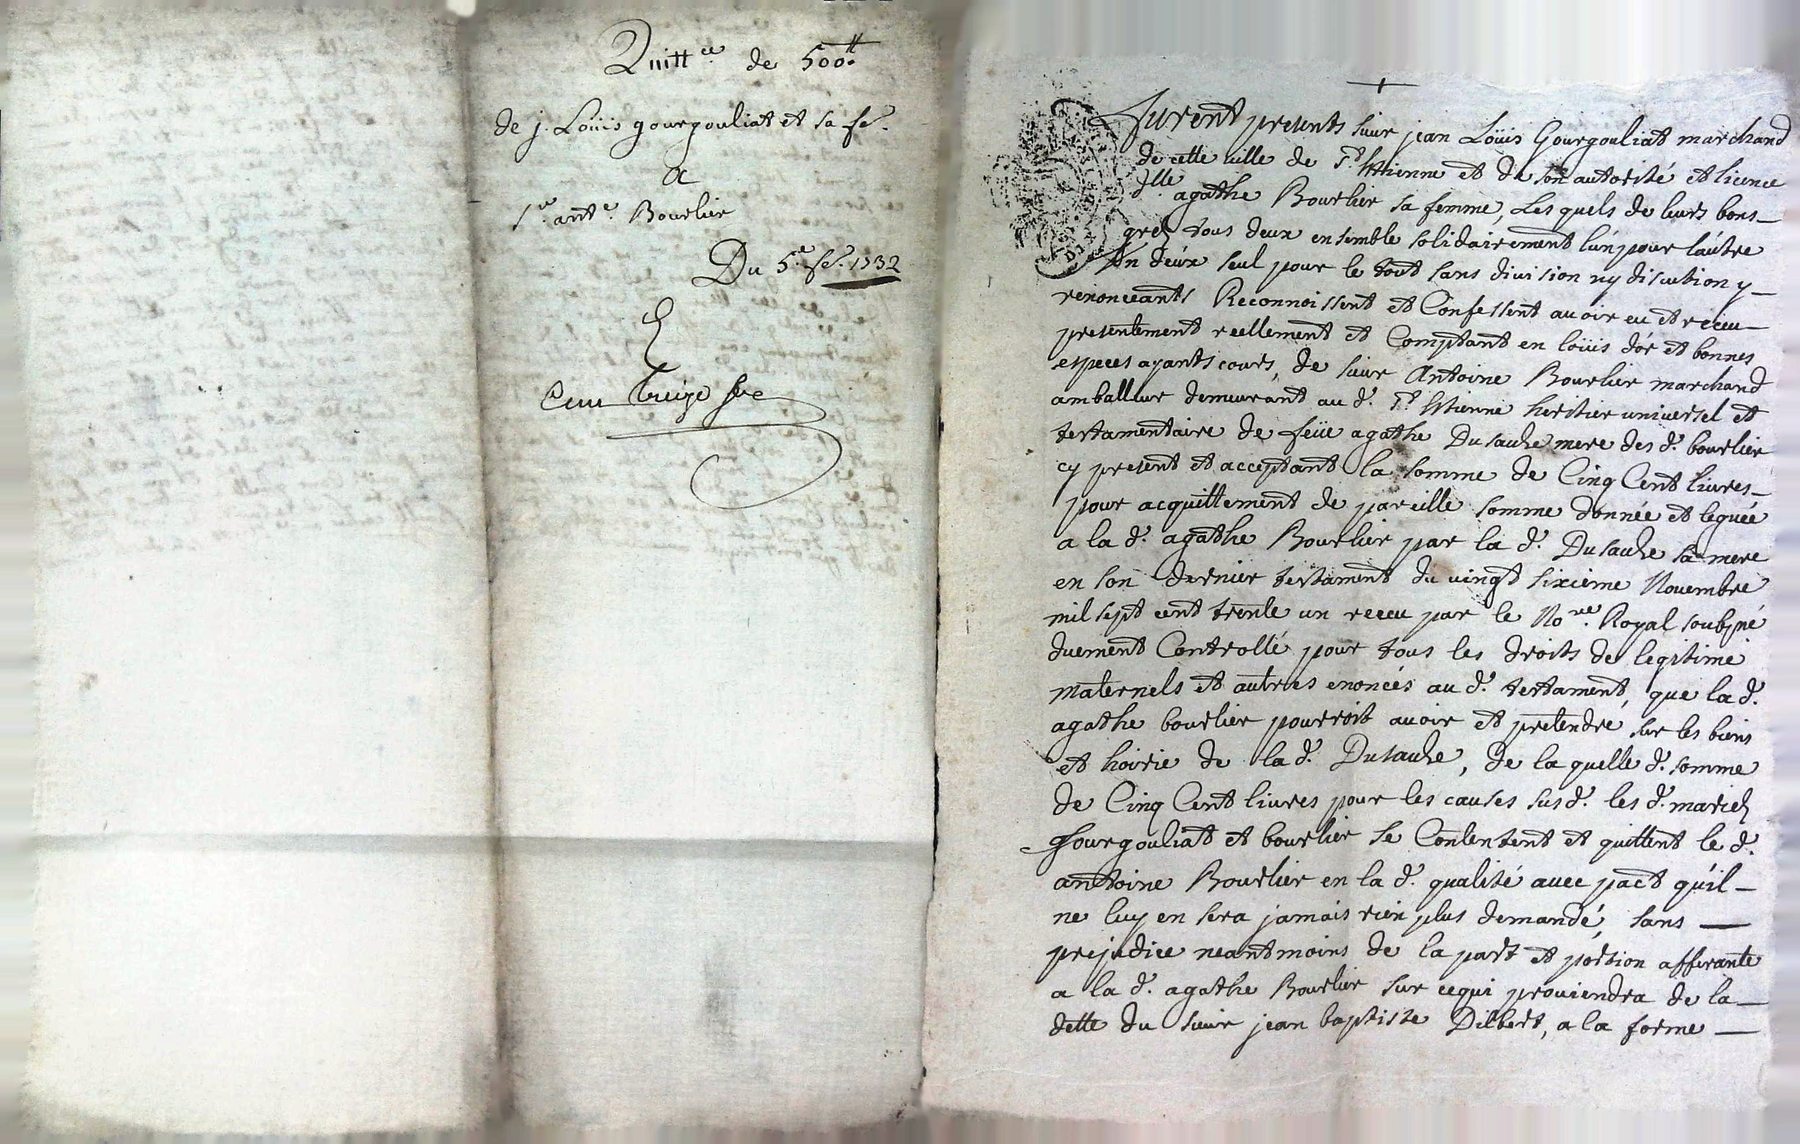 Quitt.ce de 500.tt
de j. Loüis gourgouliat et sa fe.
a
s.r ant.e Bourlier
Du 5.e fe. 1732
Cent treize
Furent presents sieur jean Loüis Gourgouliat marchand
de cette ville de S.t Ettienne et de son autorité et licence
d.lle agathe Bourlier sa femme, Les quels de leurs bons
grez tous deux ensemble solidairement lún pour láutre
Un déux seul pour le tout sans division ny discution y
renonceants Reconnoissent et Confessent avoir eu et receu
presentement reellement et Comptant en loüis dór et bonnes
especes ayants cours, de sieur Antoine Bourlier marchand
amballeur demeurant au d. S.t Ettienne heritier universel et
testamentaire de feüe agathe Dusauze mere des d. bourlier
cy present et acceptant la somme de Cinq Cent livres
pour acquittement de pareille somme donnée et leguée
a la d. agathe Bourlier par la d. Dusauze sa mere
en son dernier testament du vingt sixieme Novembre
mil sept cent trente un receu par le No.re Royal soubsné
duement Controllé pour tous les droits de legitime
maternels et autres enoncés au d. testament, que la d.
agathe bourlier pourroit avoir et pretendre sur les biens
et hoirie de la d. Dusauze, de la quelle d. somme
de Cinq Cent livres pour les causes sus d. les d. mariez
Gourgouliat et bourlier se Contentent et quittent le d.
antoine Bourlier en la d. qualité avec pact quíl
ne luy en sera jamais rien plus demandé, sans
prejudice neantmoins de la part et portion afferante
a la d. agathe Bourlier sur cequi proviendra de la
dette du sieur jean baptiste Dilbert, a la forme